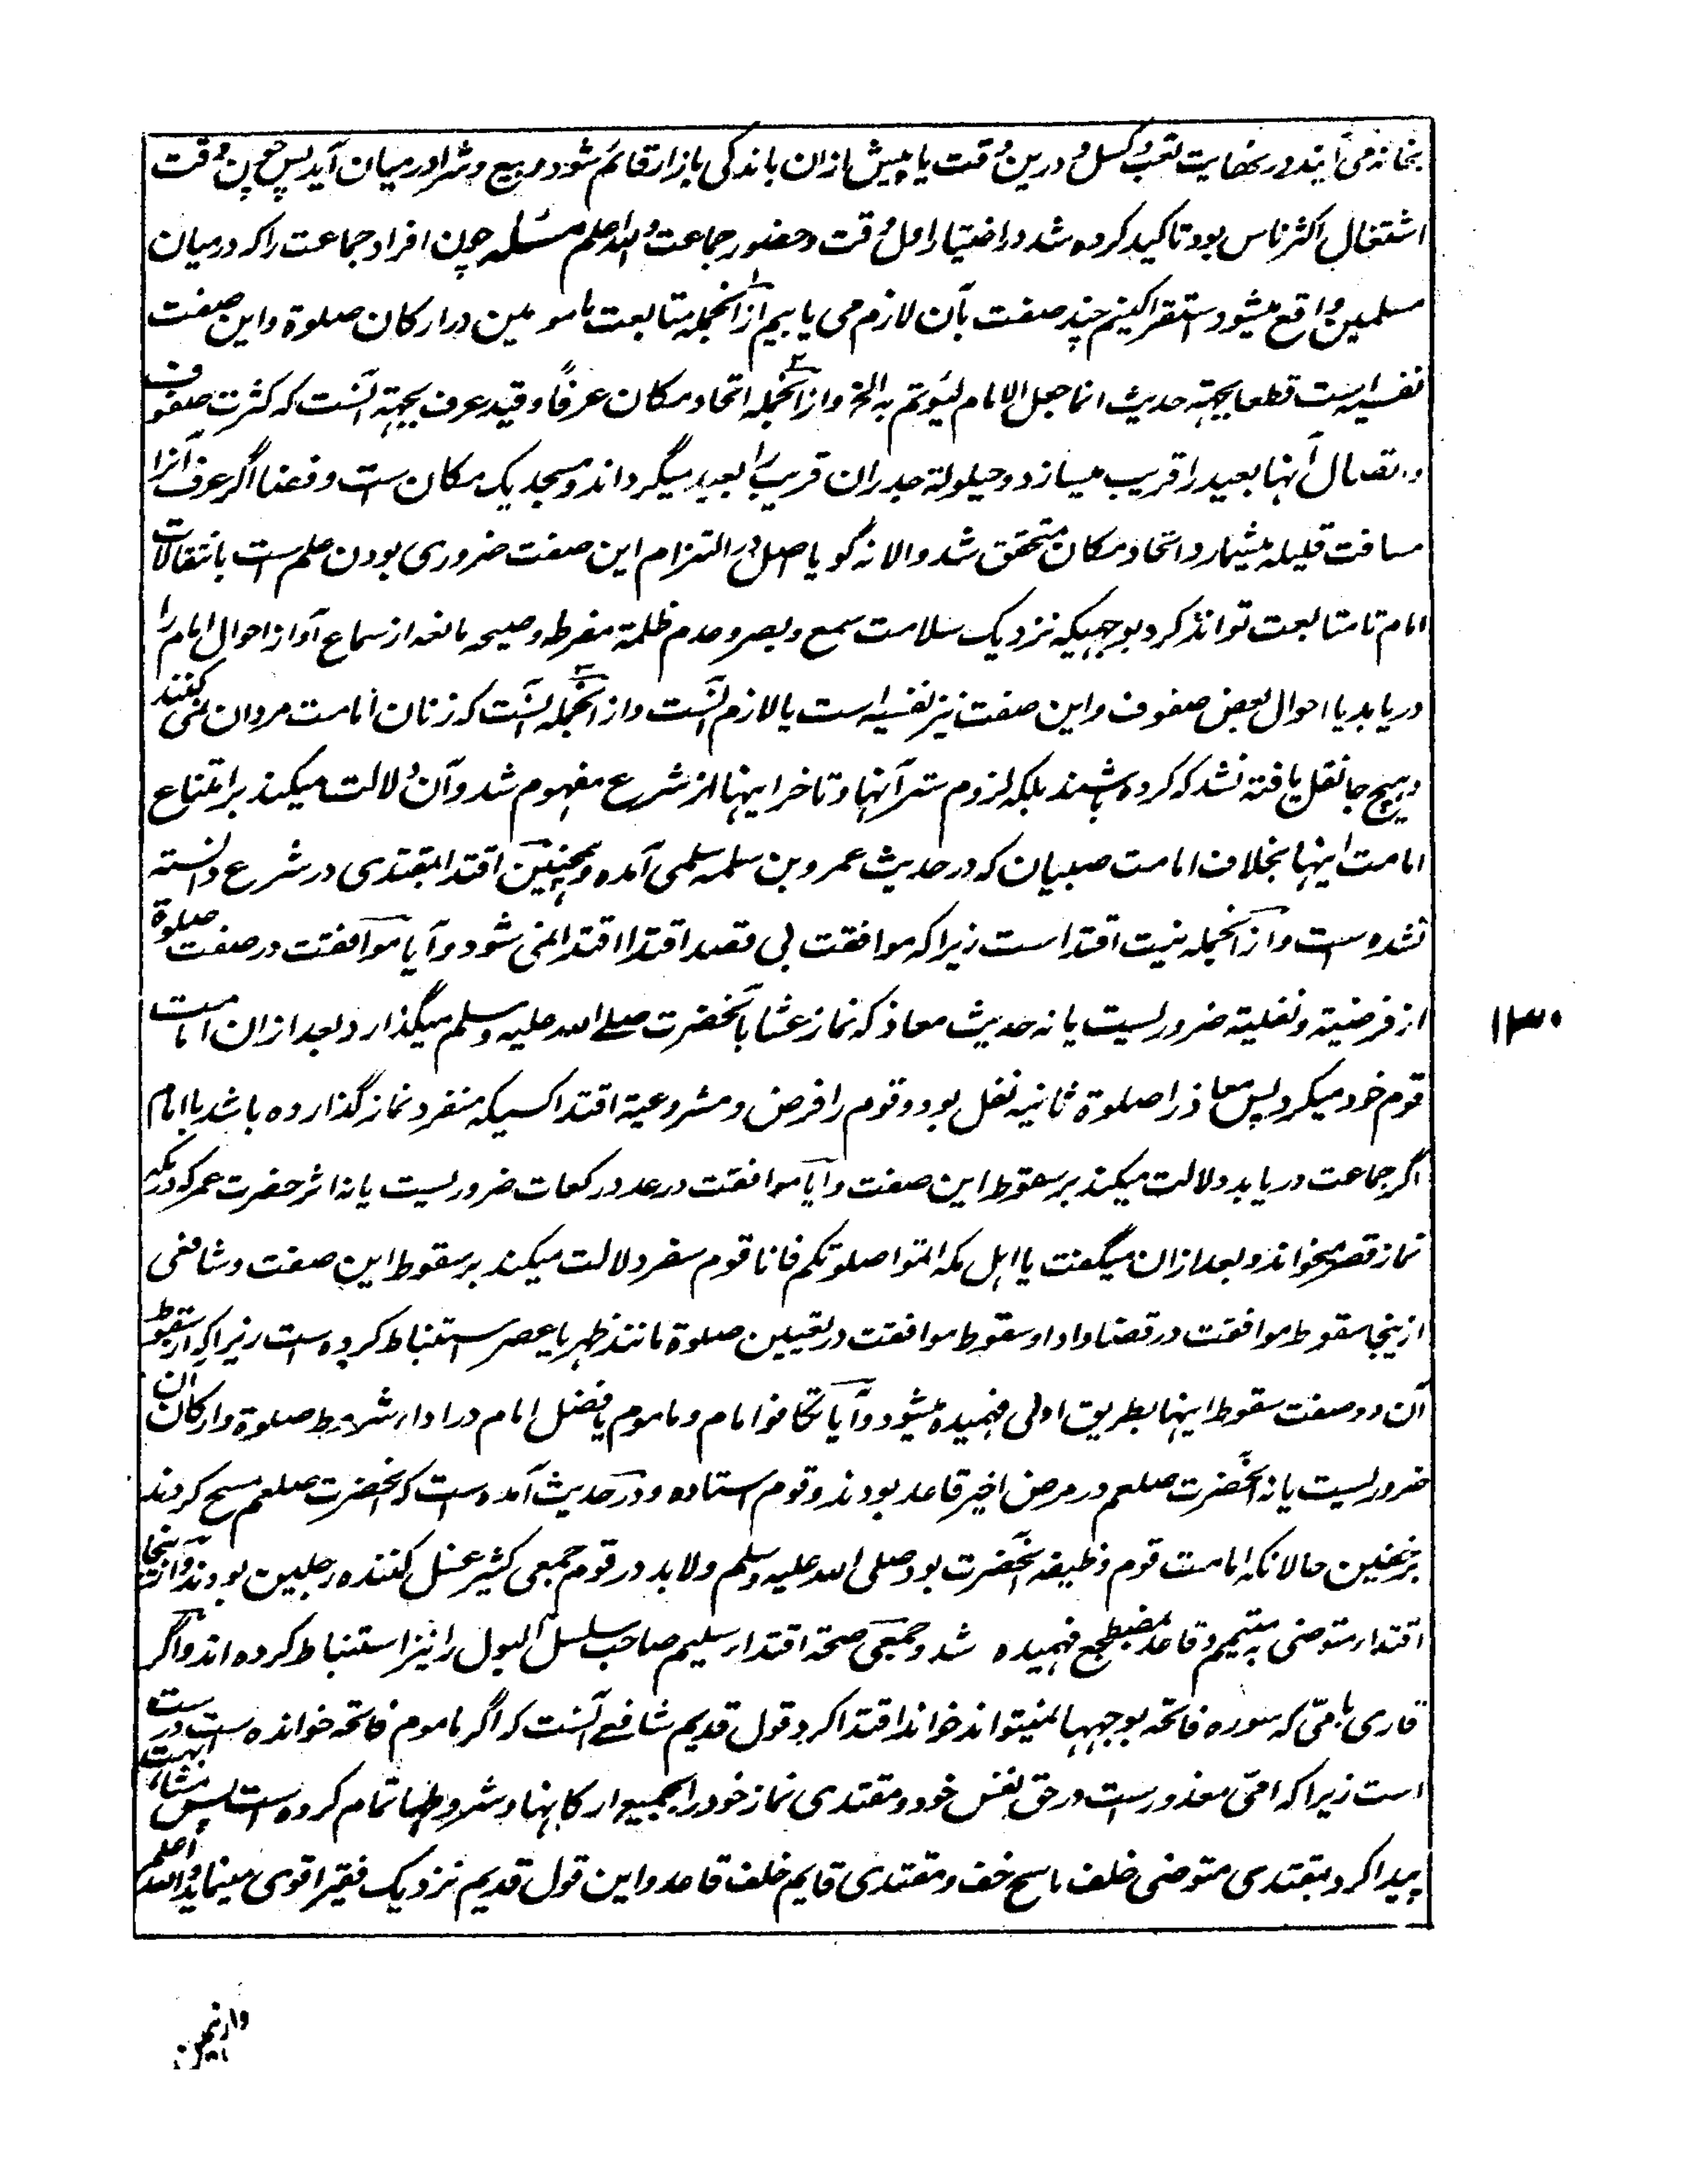 بخانه می آیند در نهایت تعب و کسل و درین وقت یا پیش ازان باندکی بازار قائم شود و بیع و شرا درمیان آید پس چون وقت
اشتغال اکثر ناس بود تاکید کرده شد در اختیار اول وقت و حضور جماعت والله اعلم مسئله چون افراد جماعت را که درمیان
مسلمین واقع میشود استقرا کنیم چند صفت بآن لازم می یابیم ازانجمله متابعت مامومین در ارکان صلوة و این صفت
نفسیه است قطعا بجهة حدیث انما جعل الامام لیؤتم به الخ و ازانجمله اتحاد مکان عرفاً و قید عرف بجهة آنست که کثرت صفوف
و اتصال آنها بعید را قریب میسازد و حیلولة جدران قریب را بعید میگرداند و مسجد یک مکان ست و فضا اگر عرف آنرا
مسافت قلیله میشمارد اتحاد مکان متحقق شد والا نه گویا اصل در التزام این صفت ضروری بودن علم ست بانتقالات
امام تا متابعت تواند کرد بوجهیکه نزدیک سلامت سمع و بصر و عدم ظلمة مفرطه و صیحه مانعه از سماع آواز احوال امام را
دریابد یا احوال بعض صفوف و این صفت نیز نفسیه است یا لازم آنست و ازانجمله آنست که زنان امامت مردان نمی کنند
و هیچ جا نقل یافته نشد که کرده باشند بلکه لزوم ستر آنها و تاخر اینها از شرع مفهوم شد و آن دلالت میکند بر امتناع
امامت اینها بخلاف امامت صبیان که در حدیث عمرو بن سلمه سلمی آمده و همچنین اقتدا بمقتدی در شرع دانسته
نشده ست و ازانجمله نیت اقتدا ست زیرا که موافقت بی قصد اقتدا اقتدا نمی شود و آیا موافقت در صفت صلوة
از فرضیة و نفلیة ضروریست یا نه حدیث معاذ که نماز عشا با آنحضرت صلے الله علیه وسلم میگذارد و بعد ازان امامت
قوم خود میکرد پس معاذ را صلوة ثانیه نفل بود و قوم را فرض و مشروعیة اقتدا کسیکه منفرد نماز گذارده باشد با امام
اگر جماعت دریابد دلالت میکند بر سقوط این صفت و آیا موافقت در عدد رکعات ضروریست یا نه اثر حضرت عمر که در مکه
نماز قصر میخواند و بعد ازان میگفت یا اهل مکه اتموا صلوتکم فانا قوم سفر دلالت میکند بر سقوط این صفت و شافعی
ازینجا سقوط موافقت در قضا و ادا و سقوط موافقت در تعیین صلوة مانند ظهر یا عصر استنباط کرده ست زیرا که از سقوط
آن دو صفت سقوط اینها بطریق اولی فهمیده میشود و آیا تکافؤ امام و ماموم یا فضل امام در اداء شروط صلوة و ارکان آن
ضروریست یا نه آنحضرت صلعم در مرض اخیر قاعد بودند و قوم استاده و در حدیث آمده ست که آنحضرت صلعم مسح کردند
بر خفین حالانکه امامت قوم وظیفه آنحضرت بود صلی الله علیه وسلم ولا بد در قوم جمعی کثیر غسل کننده رجلین بودند و ازینجا
اقتداء متوضی به متیمم و قاعد مضطجع فهمیده شد و جمعی صحة اقتداء سلیم صاحب سلسل البول را نیز استنباط کرده اند و اگر
قاری بامّی که سوره فاتحه بوجهها نمیتواند خواند اقتدا کرد قول قدیم شافعے آنست که اگر ماموم فاتحه خوانده ست درست
است زیرا که امّی معذور ست در حق نفس خود و مقتدی نماز خود را بجمیع ارکانها و شروطها تمام کرده است پس مشابهت
پیدا کرد بمقتدی متوضی خلف ماسح خف و مقتدی قایم خلف قاعد و این قول قدیم نزدیک فقیر اقوی مینماید والله اعلم
۱۳۰